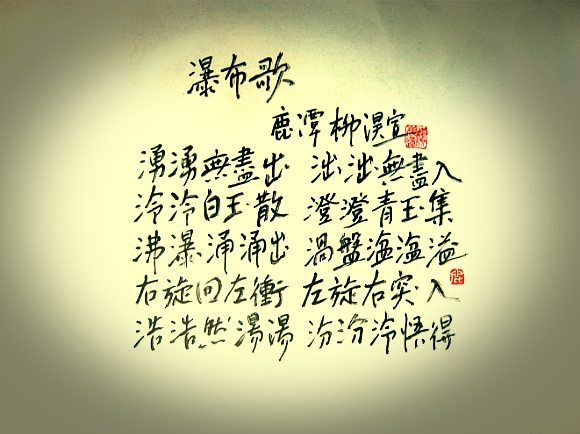 瀑布歌
鹿潭 柳淏宣
湧湧無盡出 泏泏無盡入
冷冷白玉散 澄澄青玉集
沸瀑涌涌出 渦盤溫溫溢
右旋回左衝 左旋右突入
浩浩然湯湯 汾汾冷悟得